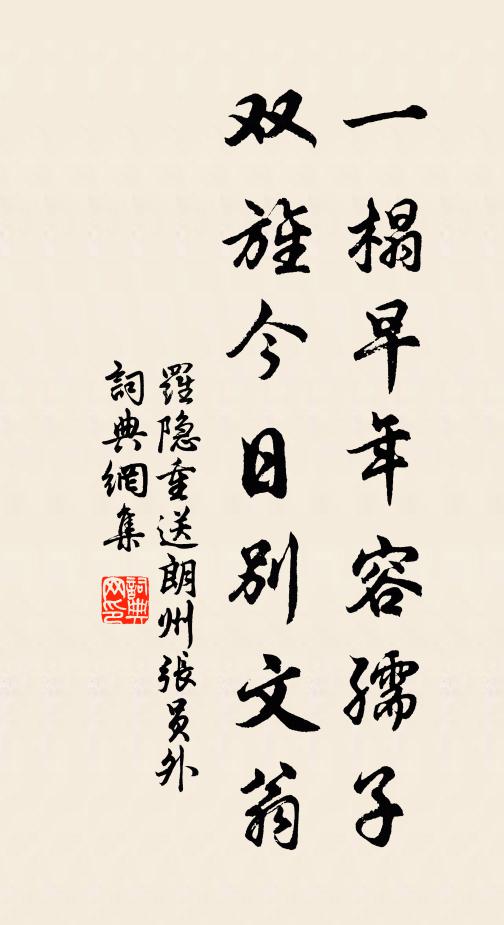 一榻早年容孺子
双旌今日別文翁
羅隐重送朗州張员外
詞典網集
詞典网印